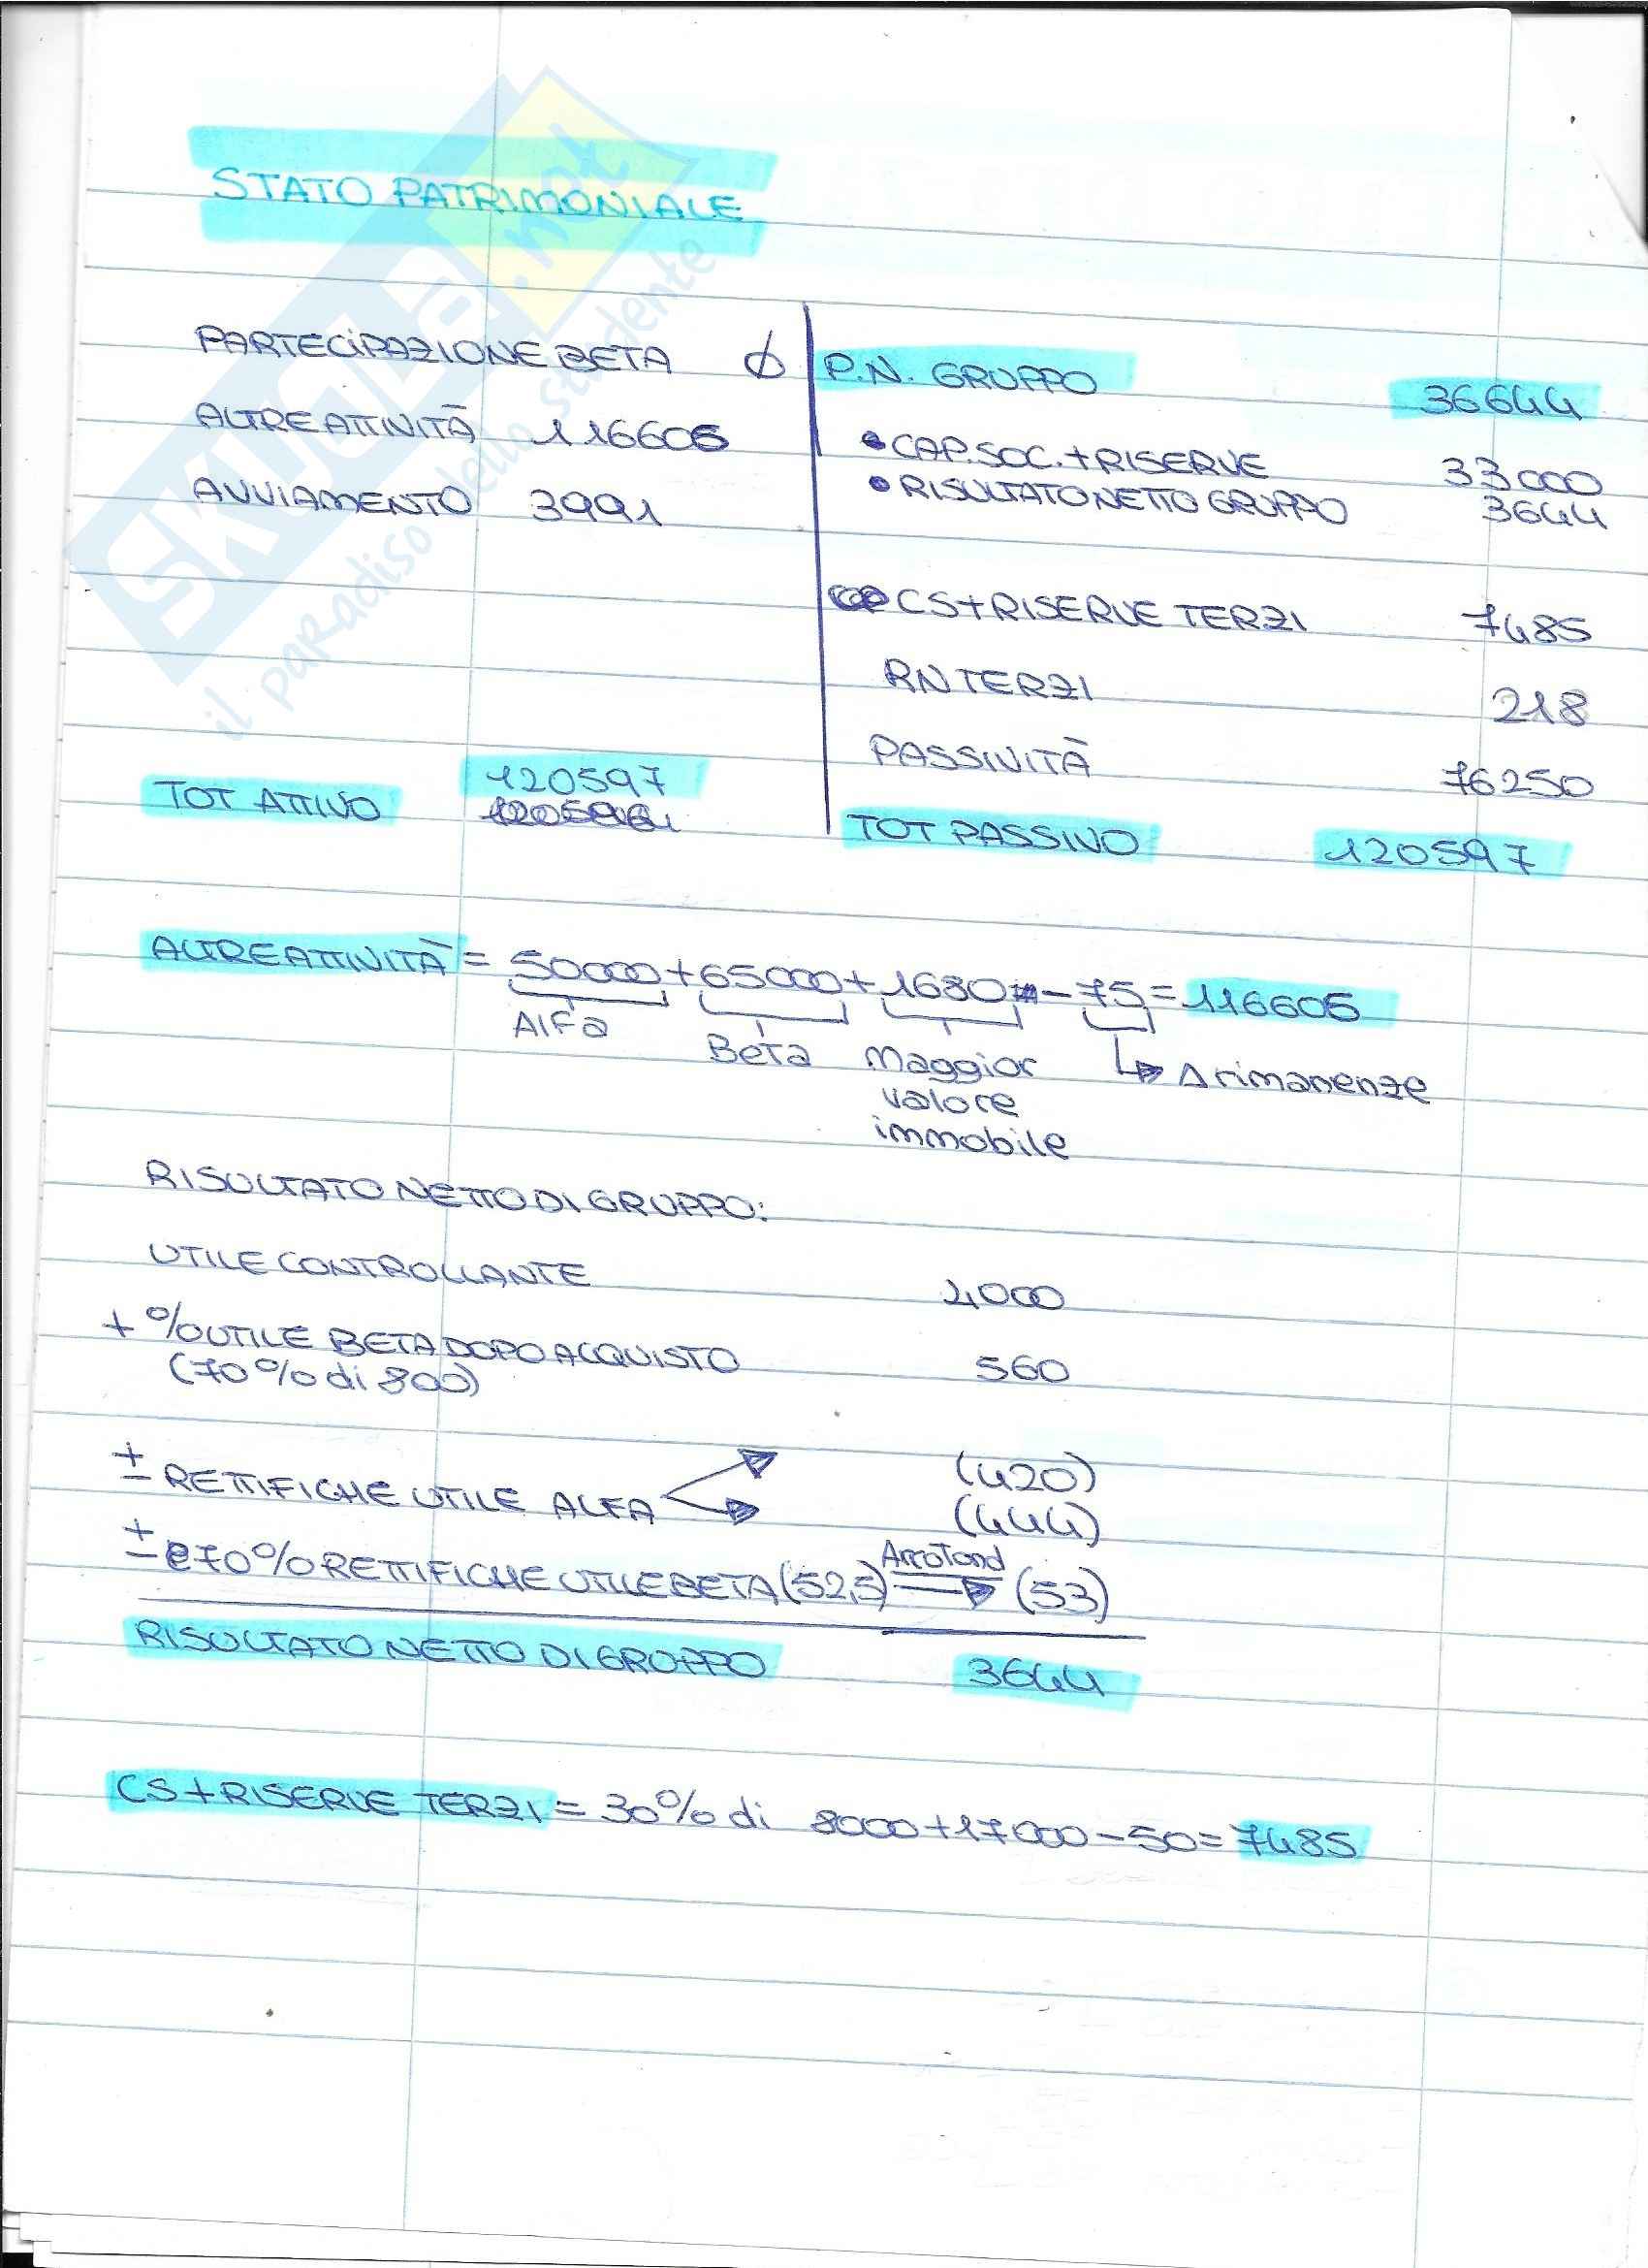 STATO PATRIMONIALE
PARTECIPAZIONE BETA Ø
ALTRE ATTIVITÀ 116606
AVVIAMENTO 3991
TOT ATTIVO 120597
P.N. GRUPPO 36644
• CAP. SOC. + RISERVE 33000
• RISULTATO NETTO GRUPPO 3644
CS + RISERVE TERZI 7485
RN TERZI 218
PASSIVITÀ 76250
TOT PASSIVO 120597
ALTRE ATTIVITÀ = 50000 + 65000 + 1680 - 75 = 116606
Alfa
Beta
Maggior
valore
immobile
↳ Δ rimanenze
RISULTATO NETTO DI GRUPPO:
UTILE CONTROLLANTE 4000
+ % UTILE BETA DOPO ACQUISTO 560
(70% di 800)
± RETTIFICHE UTILE ALFA (420)
(444)
± 70% RETTIFICHE UTILE BETA (52,5) Arrotond (53)
RISULTATO NETTO DI GRUPPO 3644
CS + RISERVE TERZI = 30% di 8000 + 17000 - 50 = 7485
SKUOLA.net
il paradiso dello studente